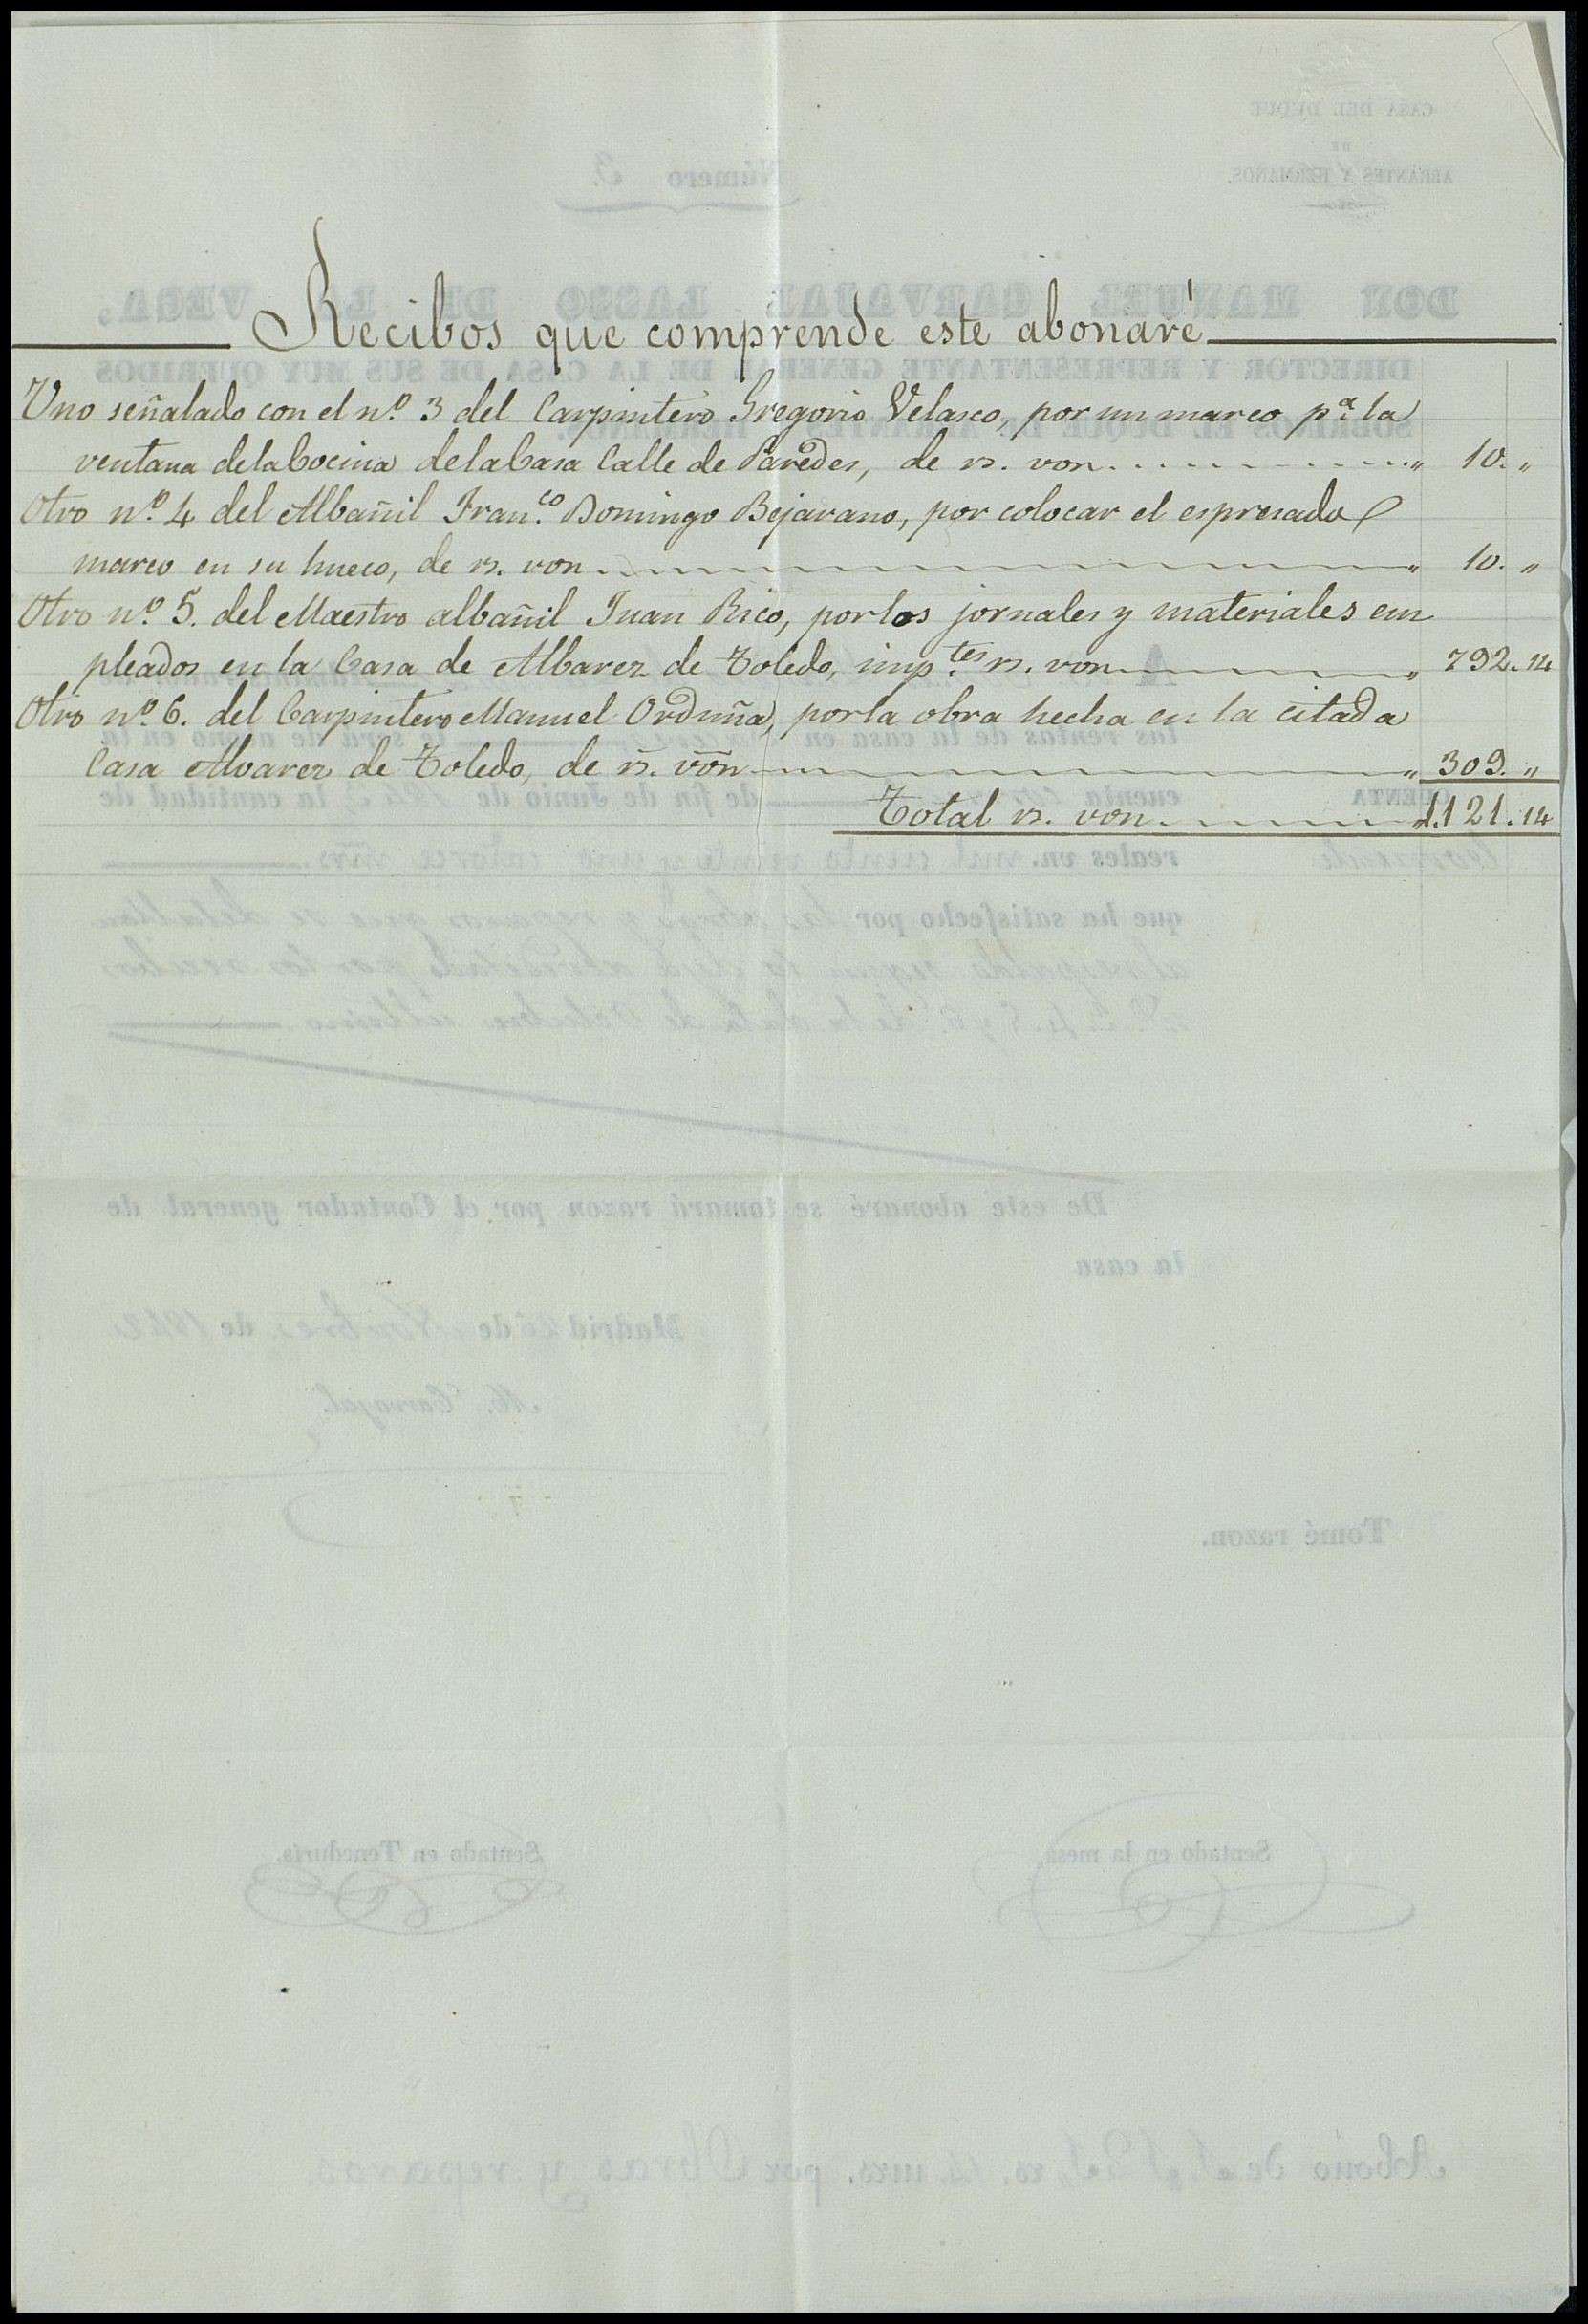 Recibos que comprende este abonaré
Uno señalado con el nº 3 del Carpintero Gregorio Velasco, por un marco pª la
ventana de la Cocina de la Casa Calle de Paredes, de rs. von. " 10. "
Otro nº 4 del Albañil Franco. Domingo Bejarano, por colocar el espresado
marco en su hueco, de rs. von " 10. "
Otro nº 5. del Maestro albañil Juan Rico, por los jornales y materiales em
pleados en la Casa de Albarez de Toledo, imp.tes rs. von " 792. 14
Otro nº 6. del Carpintero Manuel Orduña, por la obra hecha en la citada
Casa Alvarez de Toledo, de rs. von " 309. "
Total rs. von. 1.121. 14